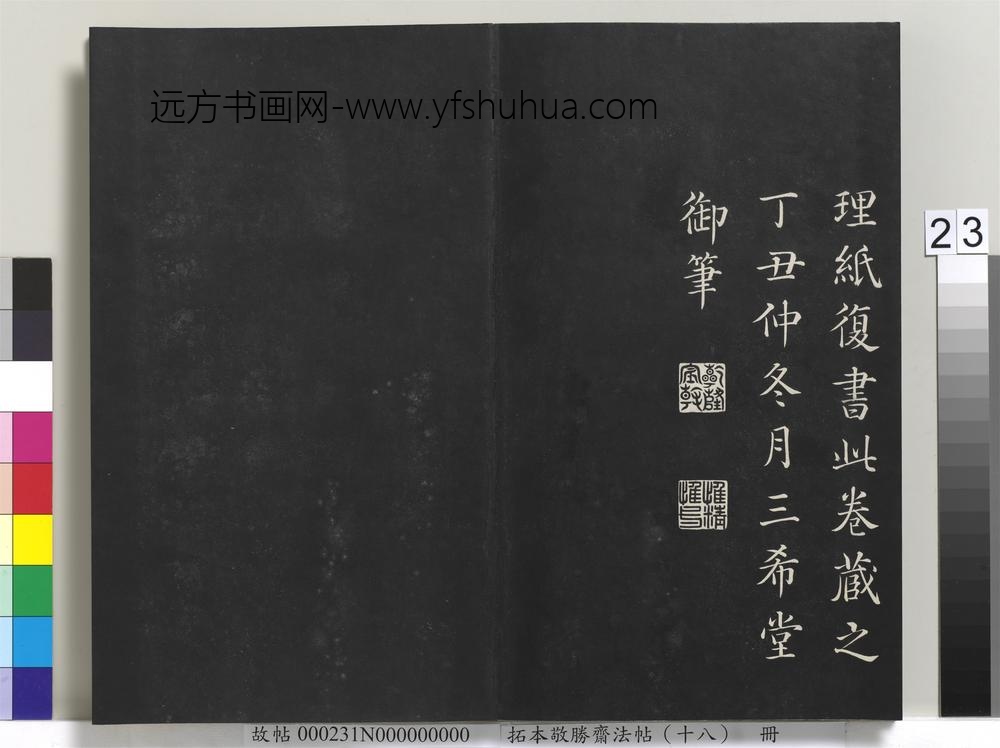 远方书画网-www.yfshuhua.com
理紙復書此卷蔵之
丁丑仲冬月三希堂
御筆
乾隆宸翰
惟精惟一
23
故帖 000231N000000000 拓本敬勝齋法帖（十八） 冊